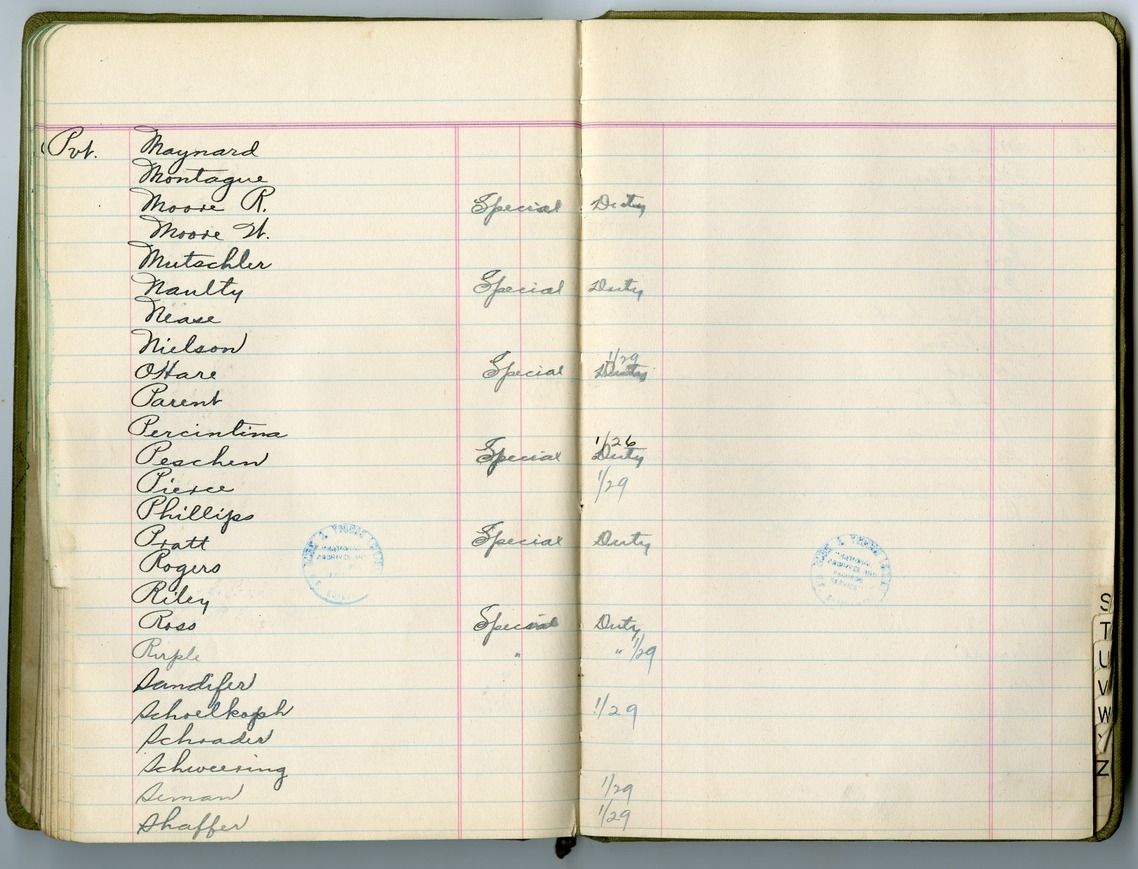 Pvt. Maynard
Montague
Moore R. Special Duty
Moore W.
Mutschler
Naulty Special Duty
Nease
Nielson
1/29
OHare Special Duty
Parent
Percintina
1/26
Peschen Special Duty
Pierce 1/29
Phillips
Pratt Special Duty
Rogers
Riley
Ross Special Duty
Ruple " " 1/29
Sandifer
Schoelkoph 1/29
Schrader
Schweering
Seman 1/29
Shaffer 1/29
S
T
U
V
W
Z